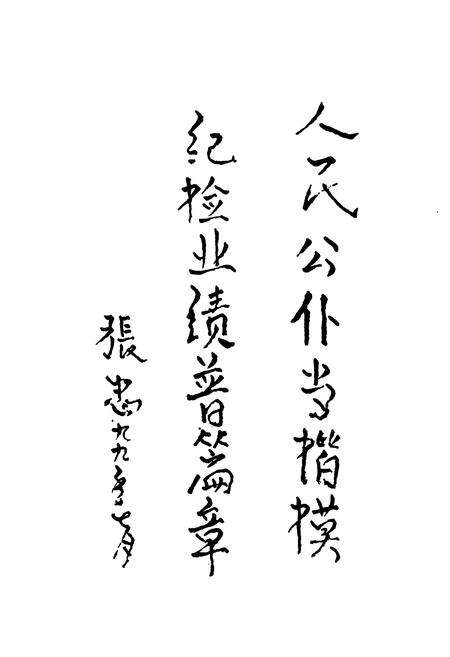 人民公仆当楷模
纪检业绩普篇章
張忠一九九九年七月